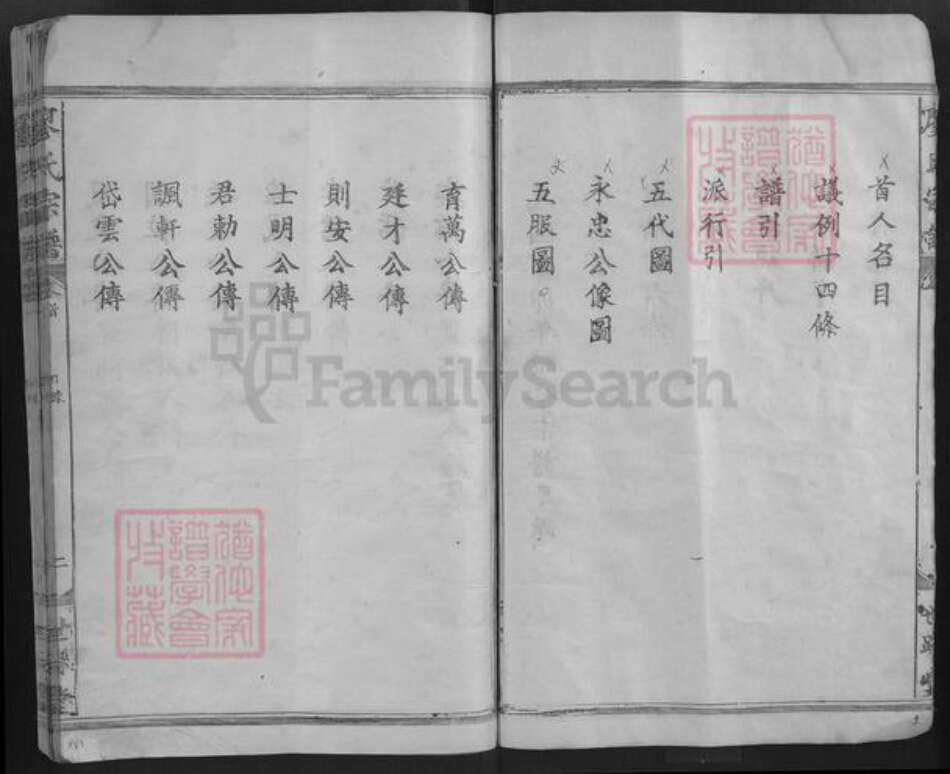 首人名目
議例十四條
譜引
派行引
五代圖
永忠公像圖
五服圖
育萬公傳
廷才公傳
則安公傳
士明公傳
君勅公傳
諷軒公傳
岱雲公傳
廖氏宗譜
卷首
目錄
二
世綵堂
FamilySearch